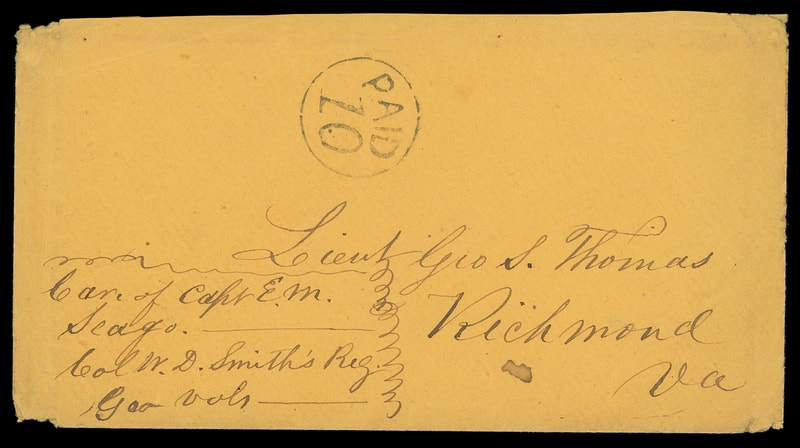 PAID
10
Lieut Geo S. Thomas
Richmond
Va
Car. of Capt E. M.
Seago.
Col W. D. Smith's Reg
Geo Vols